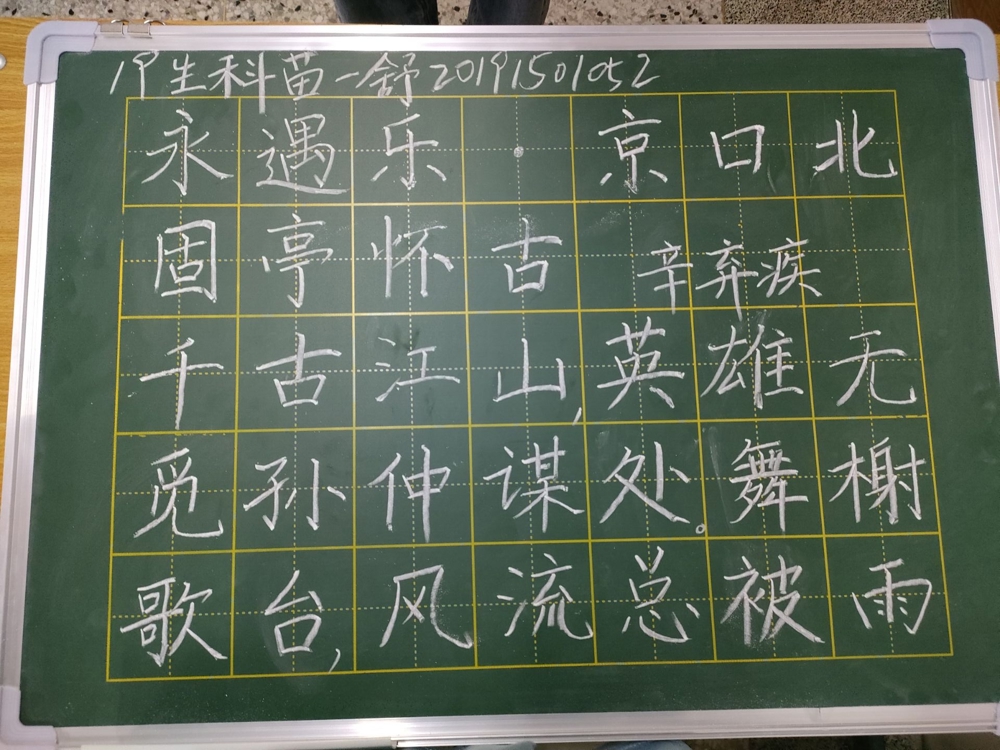 19生科苗一舒20191501052
永遇乐·京口北
固亭怀古 辛弃疾
千古江山,英雄无
觅孙仲谋处。舞榭
歌台,风流总被雨